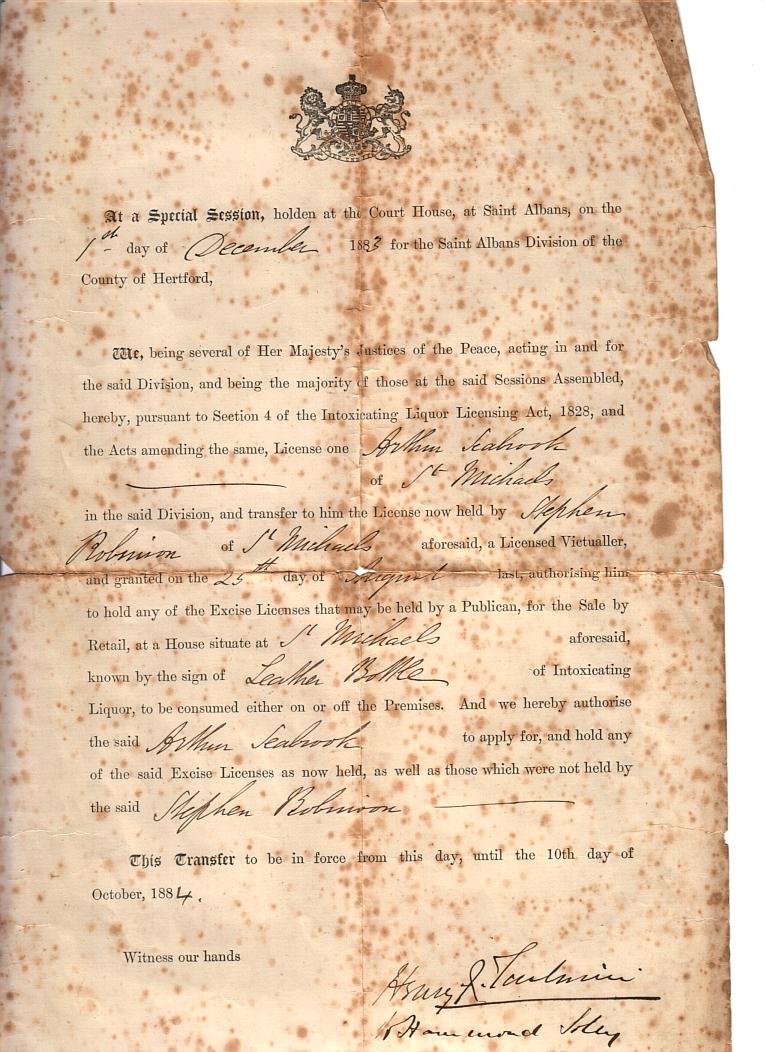 At a Special Session, holden at the Court House, at Saint Albans, on the
1st day of December 1883 for the Saint Albans Division of the
County of Hertford,
We, being several of Her Majesty's Justices of the Peace, acting in and for
the said Division, and being the majority of those at the said Sessions Assembled,
hereby, pursuant to Section 4 of the Intoxicating Liquor Licensing Act, 1828, and
the Acts amending the same, License one Arthur Seabrook
of St Michaels
in the said Division, and transfer to him the License now held by Stephen
Robinson of St Michaels aforesaid, a Licensed Victualler,
and granted on the 25th day of August last, authorising him
to hold any of the Excise Licenses that may be held by a Publican, for the Sale by
Retail, at a House situate at St Michaels aforesaid,
known by the sign of Leather Bottle of Intoxicating
Liquor, to be consumed either on or off the Premises. And we hereby authorise
the said Arthur Seabrook to apply for, and hold any
of the said Excise Licenses as now held, as well as those which were not held by
the said Stephen Robinson
This Transfer to be in force from this day, until the 10th day of
October, 1884.
Witness our hands
Henry J. Toulmin
Hammond